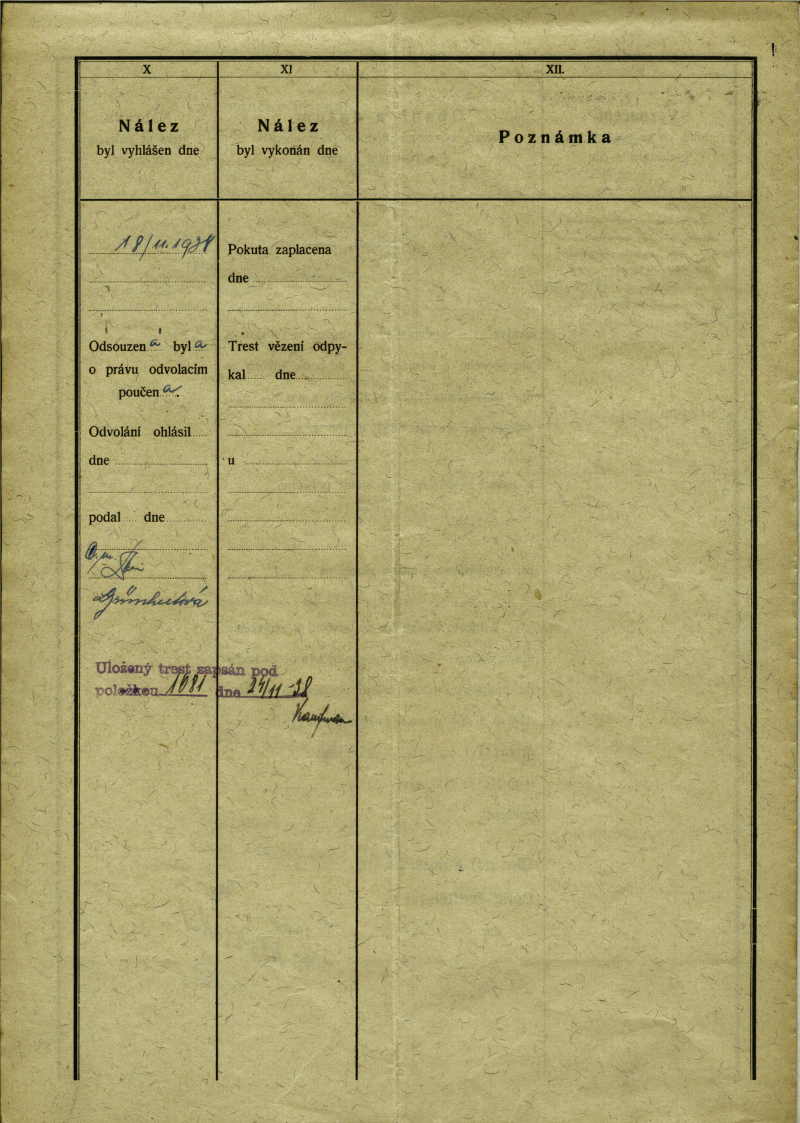 X
Nález
byl vyhlášen dne
18/11. 1938
Odsouzena byla
o právu odvolacím
poučena.
Odvolání ohlásil
dne
podal dne
XI
Nález
byl vykonán dne
Pokuta zaplacena
dne
Trest vězení odpy-
kal dne
u
Uložený trest zapsán pod
položkou 1081 dne 24/11 38
XII.
Poznámka